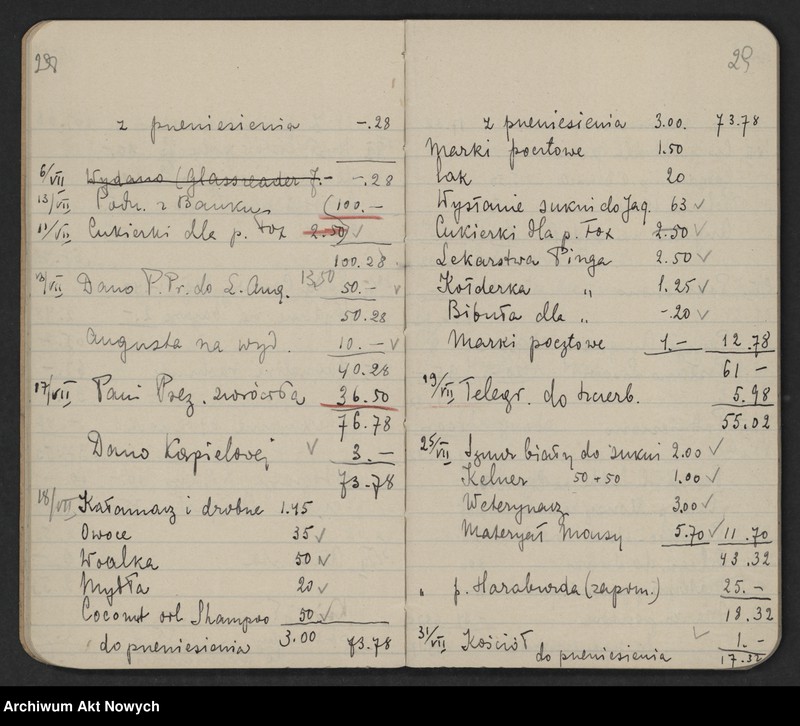 28
z pneniesienia -.28
6/VII Wydano (Glassreader J.- -.28
13/VII Podn. z Banku (100.-
11/VII Cukierki dla p. Fox 2.50)
100.28
12/VII Dano P.Pr. do L. Aug. 13,50 50.-
50.28
Augusta na wyd. 10.-
40.28
17/VII Pani Prez. zwróciła 36.50
76.78
Dano Kąpielowej 3.-
73.78
18/VII Kałamarz i drobne 1.45
Owoce 35
Woalka 50
Mydła 20
Coconut oil Shampoo 50
do pneniesienia 3.00 73.78
29
z pneniesienia 3.00. 73.78
Marki pocztowe 1.50
Lak 20
Wysłanie sukni do Jag. 63
Cukierki dla p. Fox 2.50
Lekarstwa Pinga 2.50
Kołderka " 1.25
Bibuła dla " -.20
Marki pocztowe 1.- 12.78
61 -
19/VII Telegr. do Szcerb. 5.98
55.02
25/VII Sznur biały do sukni 2.00
Kelner 50 + 50 1.00
Weterynarz 3.00
Materyał Mousy 5.70 11.70
43.32
" p. Haraburda (zapom.) 25.-
18.32
31/VII Kościół 1.-
do pneniesienia 17.32
Archiwum Akt Nowych